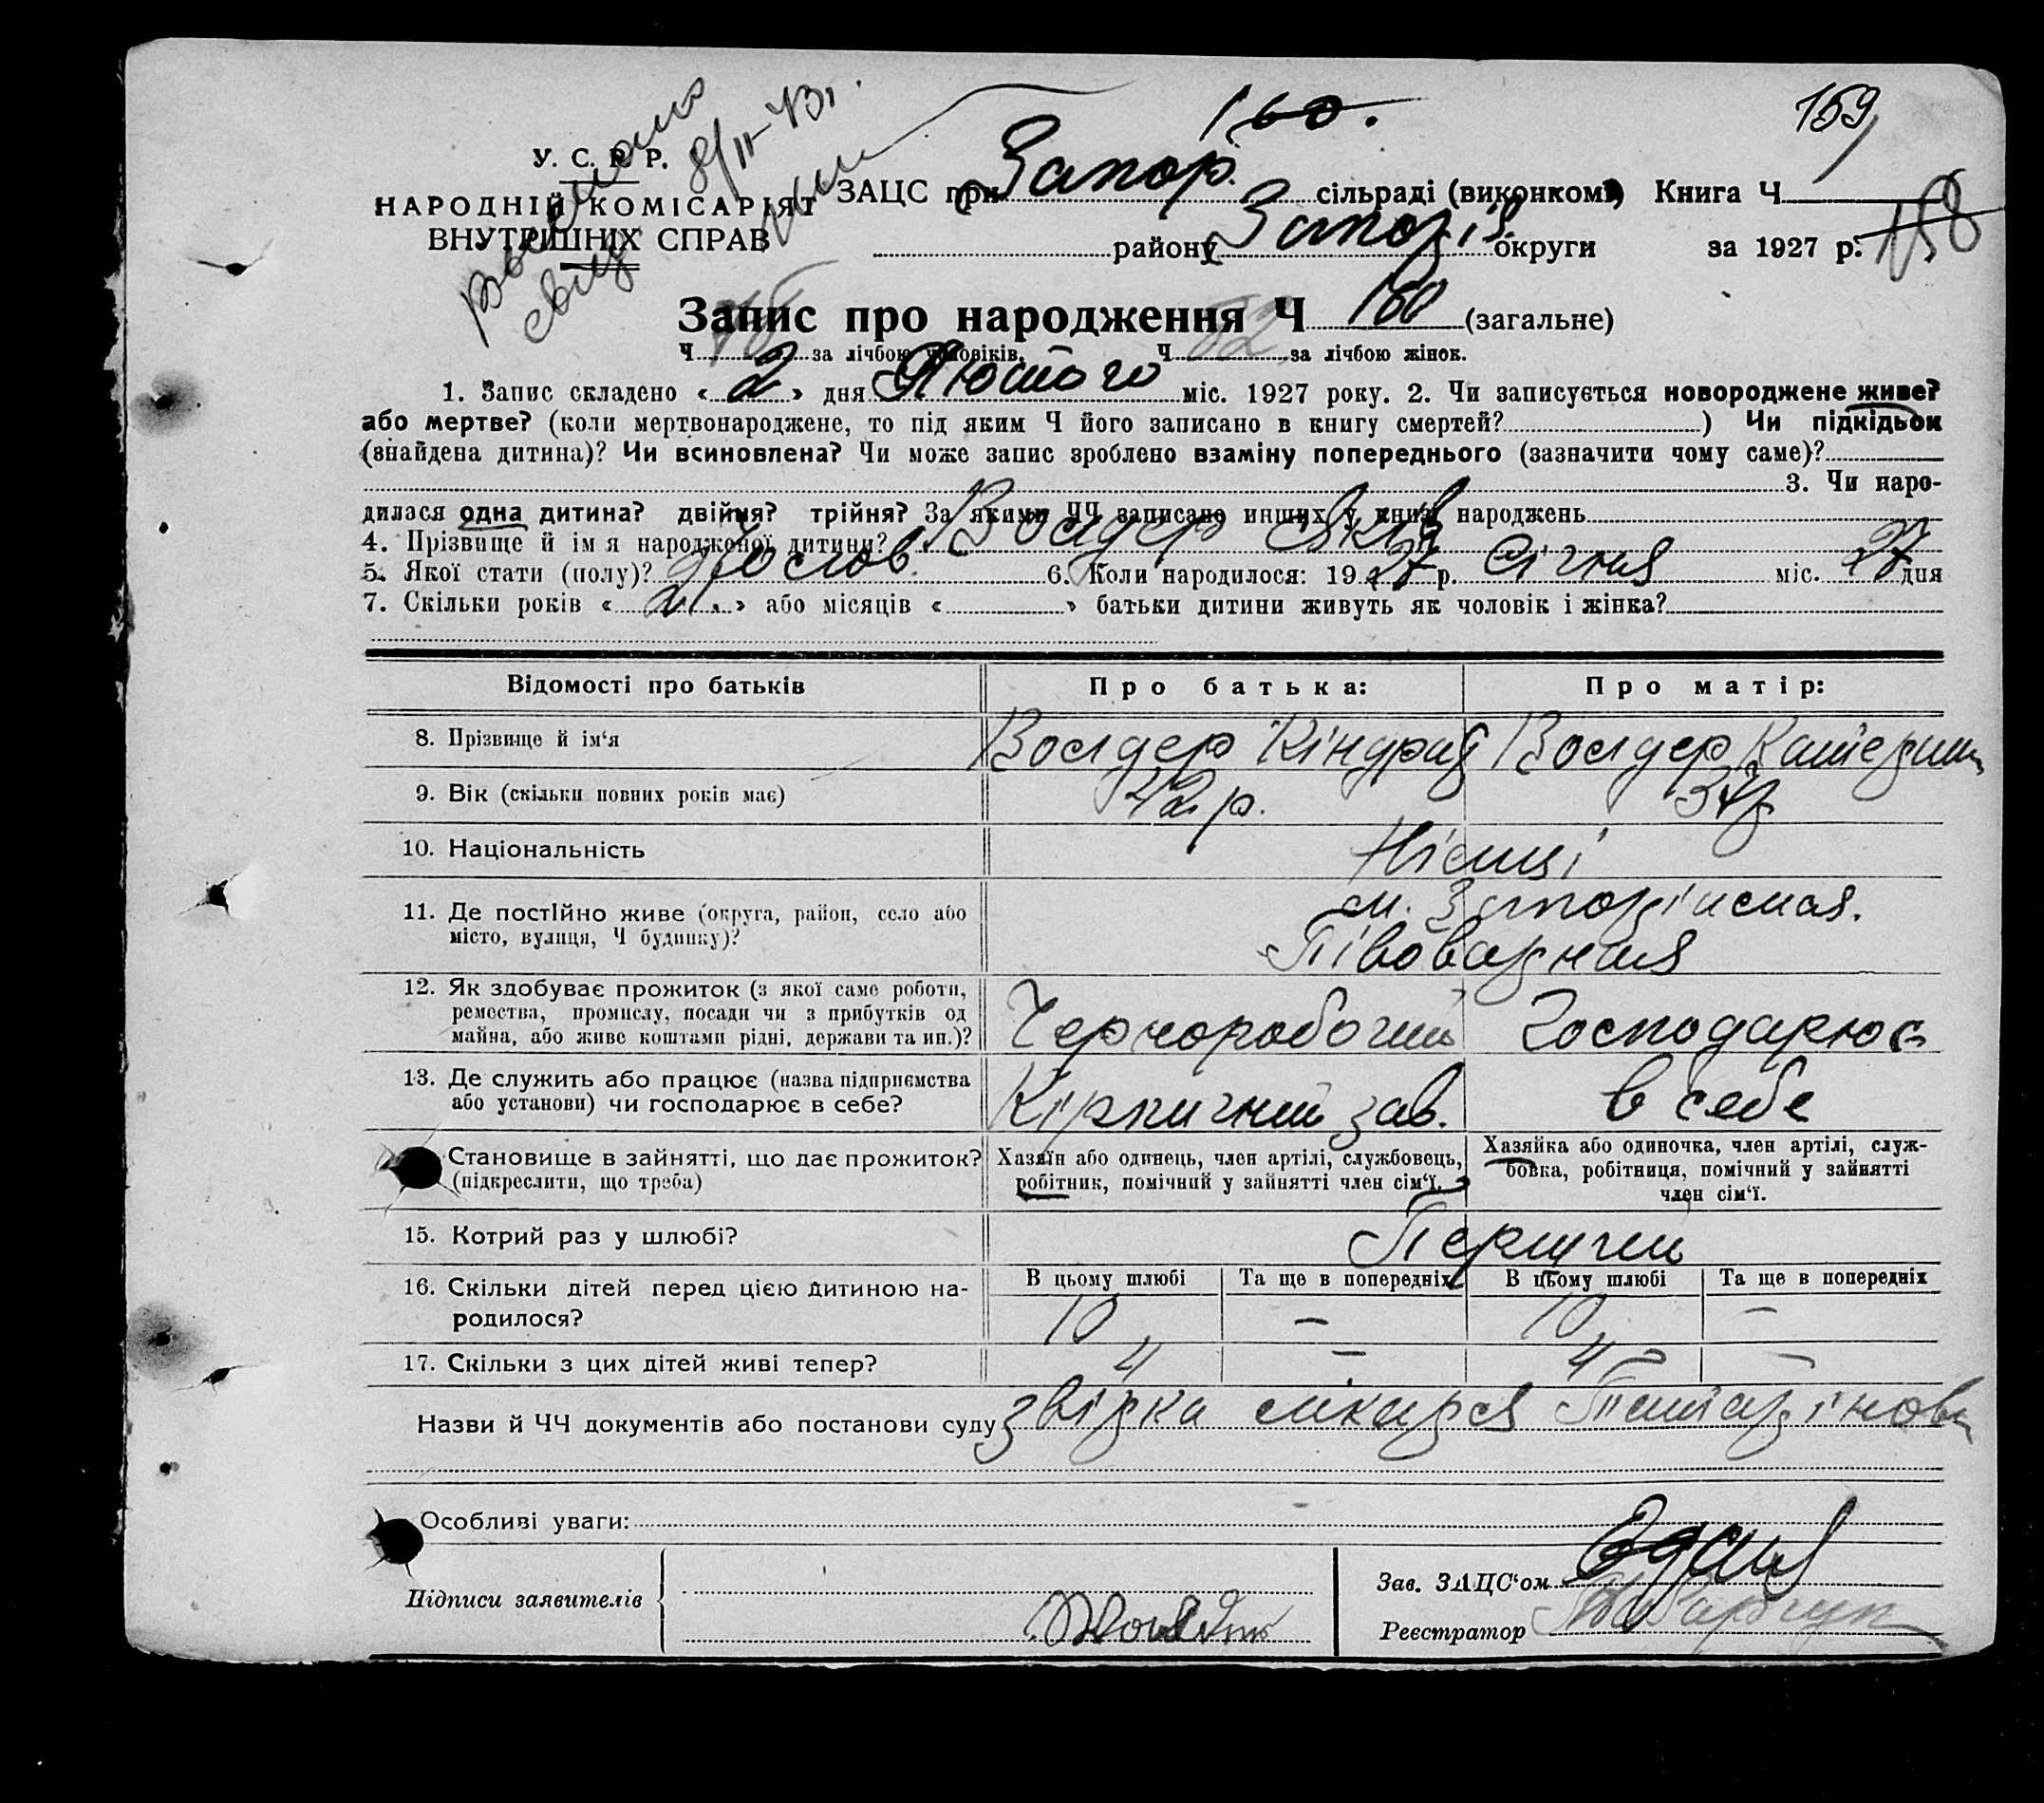 160.
159
У. С. Р. Р.
НАРОДНІЙ КОМІСАРІЯТ
ВНУТРІШНІХ СПРАВ
8/II-43г.
ЗАЦС при Запор. сільраді (виконкомі) Книга Ч
району Запоріз. округи за 1927 р. 158
Запис про народження Ч 160 (загальне)
Ч за лічбою чоловіків. Ч за лічбою жінок.
1. Запис складено « 2 » дня Лютого міс. 1927 року. 2. Чи записується новороджене живе?
або мертве? (коли мертвонароджене, то під яким Ч його записано в книгу смертей? ) Чи підкідьок
(знайдена дитина)? Чи всиновлена? Чи може запис зроблено взаміну попереднього (зазначити чому саме)?
3. Чи наро-
дилася одна дитина? двійня? трійня? За якими ЧЧ записано инших у книзі народжень
4. Прізвище й ім я народженої дитини? Волдер Яків
5. Якої стати (полу)? Чолов. 6. Коли народилося: 19 27 р. Січня міс. 27 дня
7. Скільки років « 21. » або місяців « » батьки дитини живуть як чоловік і жінка?
Відомості про батьків Про батька: Про матір:
8. Прізвище й ім'я Волдер Кіндрат Волдер Катерина
9. Вік (скільки повних років має) 42 р. 37р
10. Національність Німці
11. Де постійно живе (округа, район, село або
місто, вулиця, Ч будинку)?
м.
Півоварния
12. Як здобуває прожиток (з якої саме роботи,
ремества, промислу, посади чи з прибутків од
майна, або живе коштами рідні, держави та ин.)?
Чорноробочий Господарює
13. Де служить або працює (назва підприємства
або установи) чи господарює в себе?
Кірпичний зав. в себе
Становище в зайнятті, що дає прожиток?
(підкреслити, що треба)
Хазяїн або одинець, член артілі, службовець,
робітник, помічний у зайнятті член сім'ї.
Хазяйка або одиночка, член артілі, служ-
бовка, робітниця, помічний у зайнятті
член сім'ї.
15. Котрий раз у шлюбі? Перший
16. Скільки дітей перед цією дитиною на-
родилося?
В цьому шлюбі Та ще в попередніх В цьому шлюбі Та ще в попередніх
10 – 10 –
17. Скільки з цих дітей живі тепер? 4 – 4 –
Назви й ЧЧ документів або постанови суду звірка лікаря
Особливі уваги:
Підписи заявителів
Зав. ЗАЦС'ом
Реєстратор